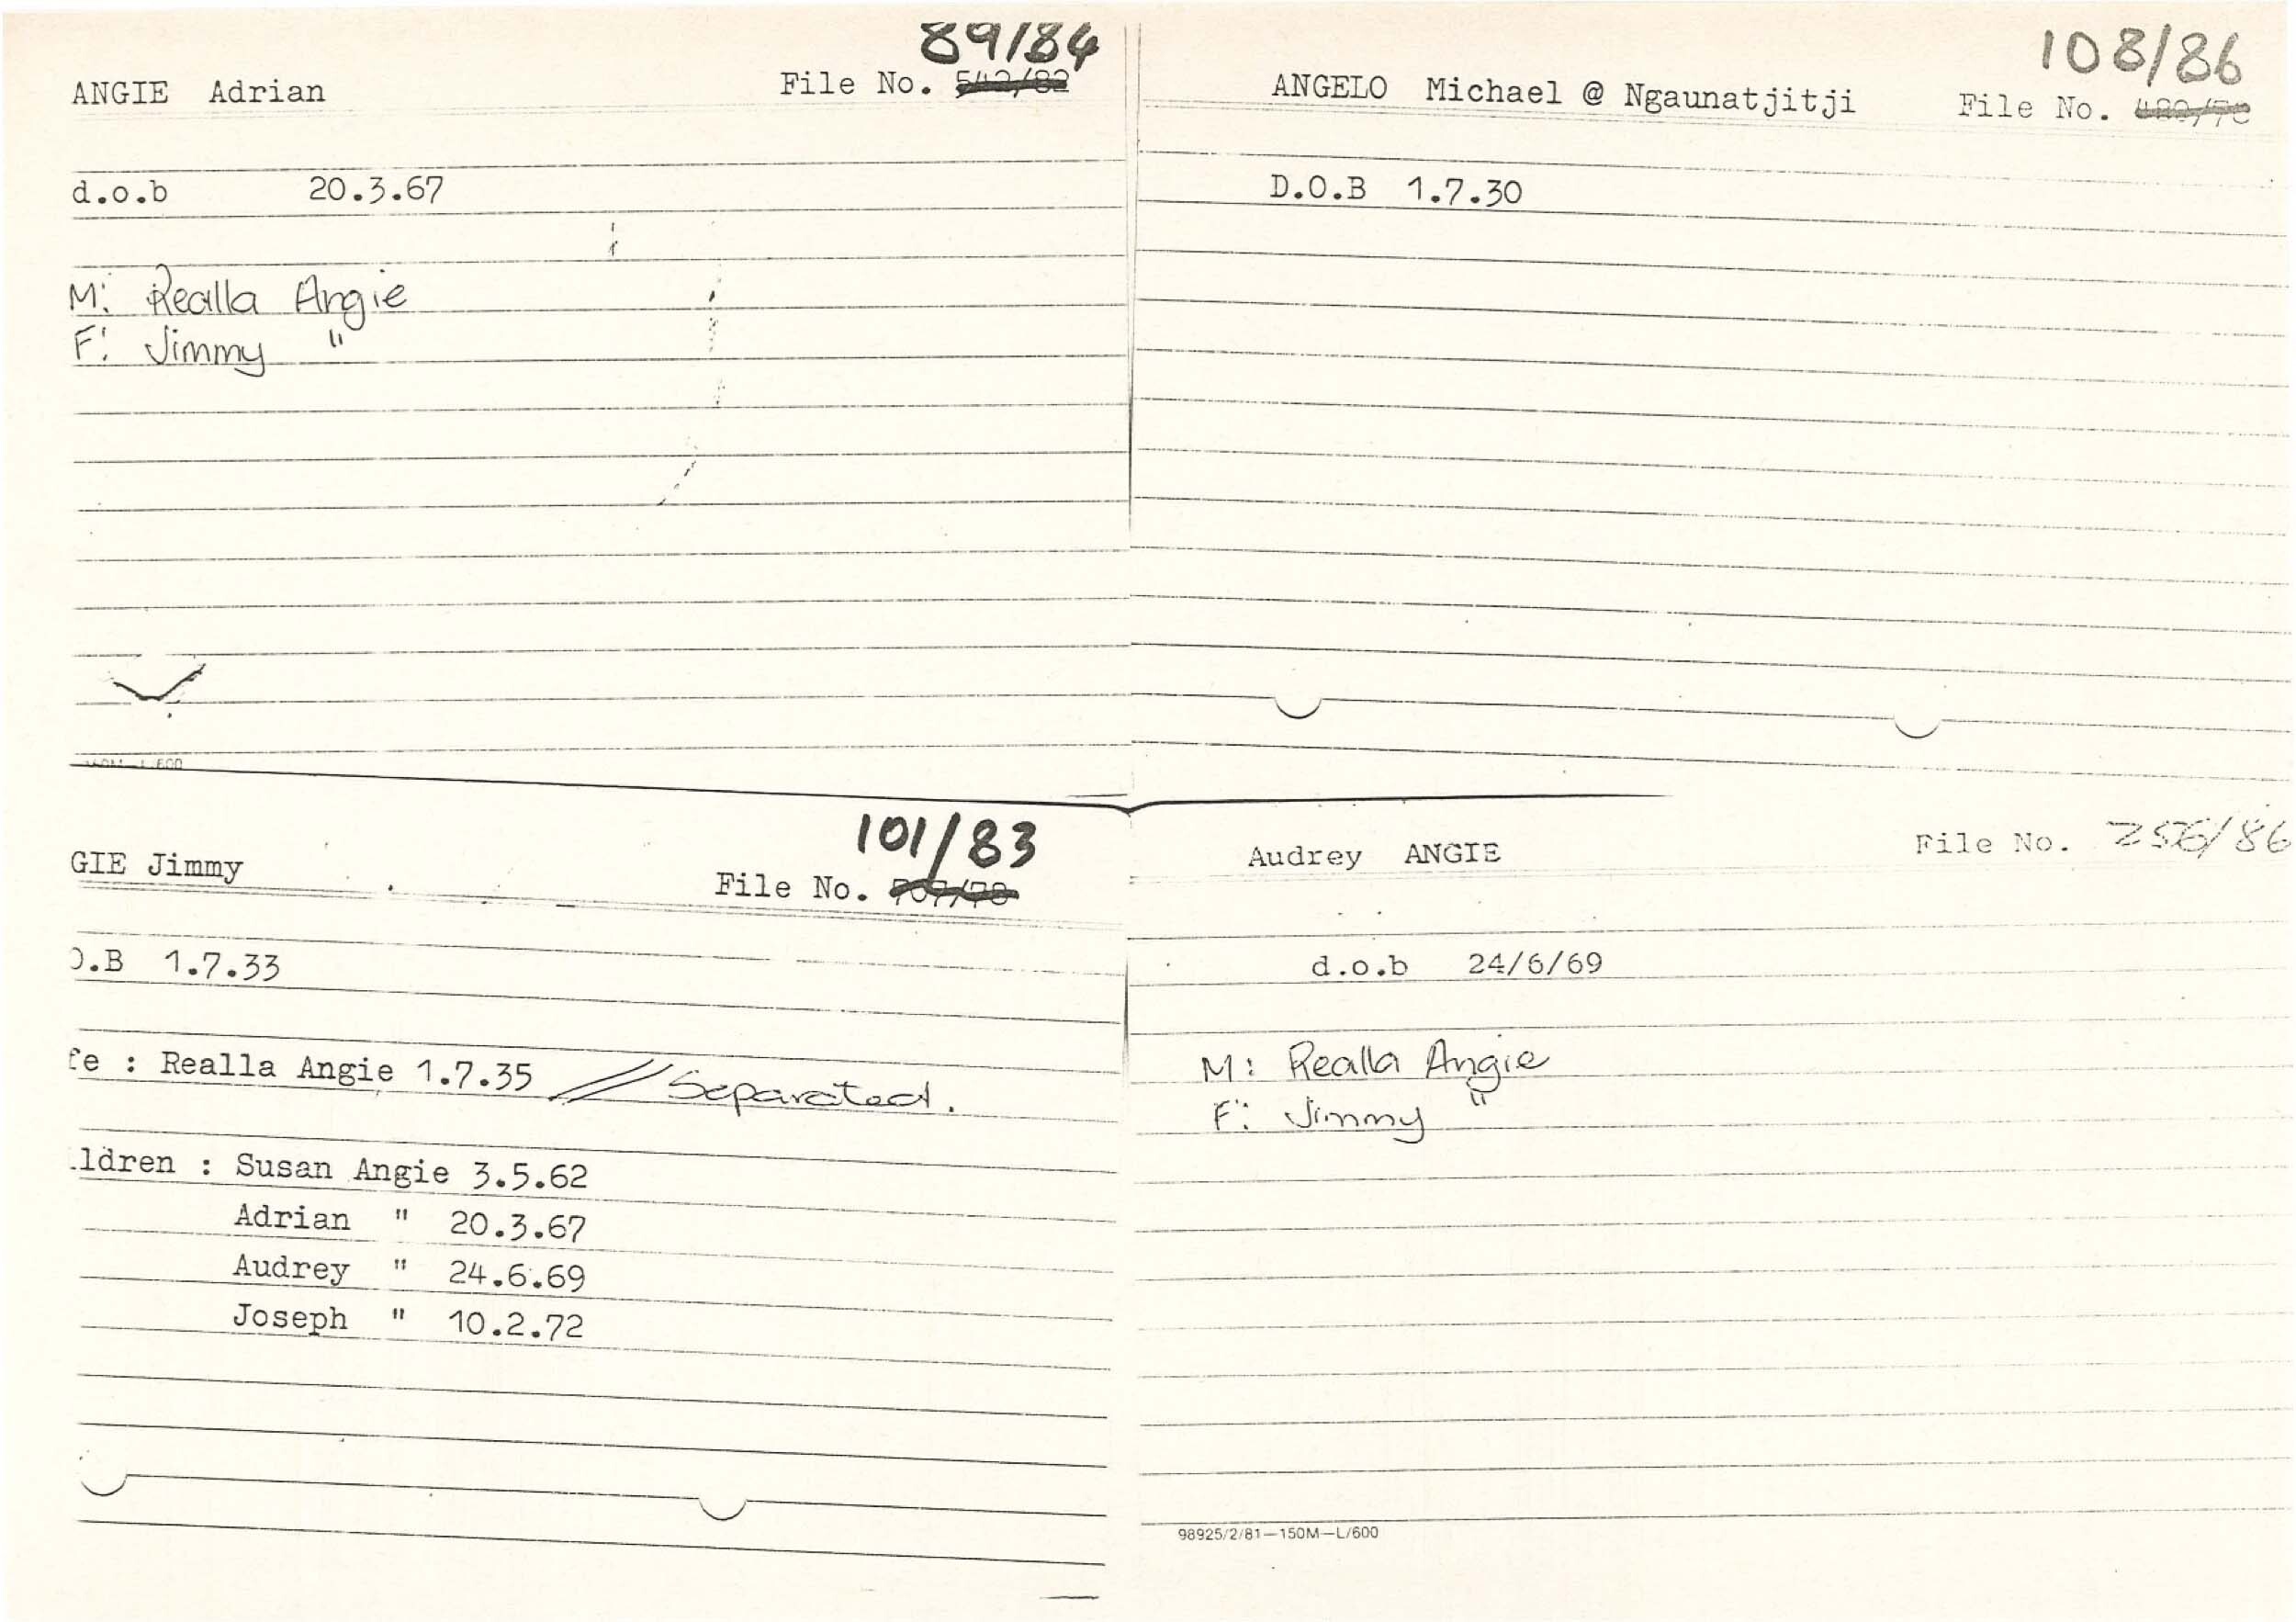 89/84
ANGIE Adrian File No. 542/82
d.o.b 20.3.67
M: Realla Angie
F: Jimmy "
108/86
ANGELO Michael @ Ngaunatjitji File No.
D.O.B 1.7.30
101/83
GIE Jimmy File No. 707/78
.B 1.7.33
fe : Realla Angie 1.7.35 // Separated.
ldren : Susan Angie 3.5.62
Adrian " 20.3.67
Audrey " 24.6.69
Joseph " 10.2.72
Audrey ANGIE File No. 256/86
d.o.b 24/6/69
M: Realla Angie
F: Jimmy "
98925/2/81—150M—L/600